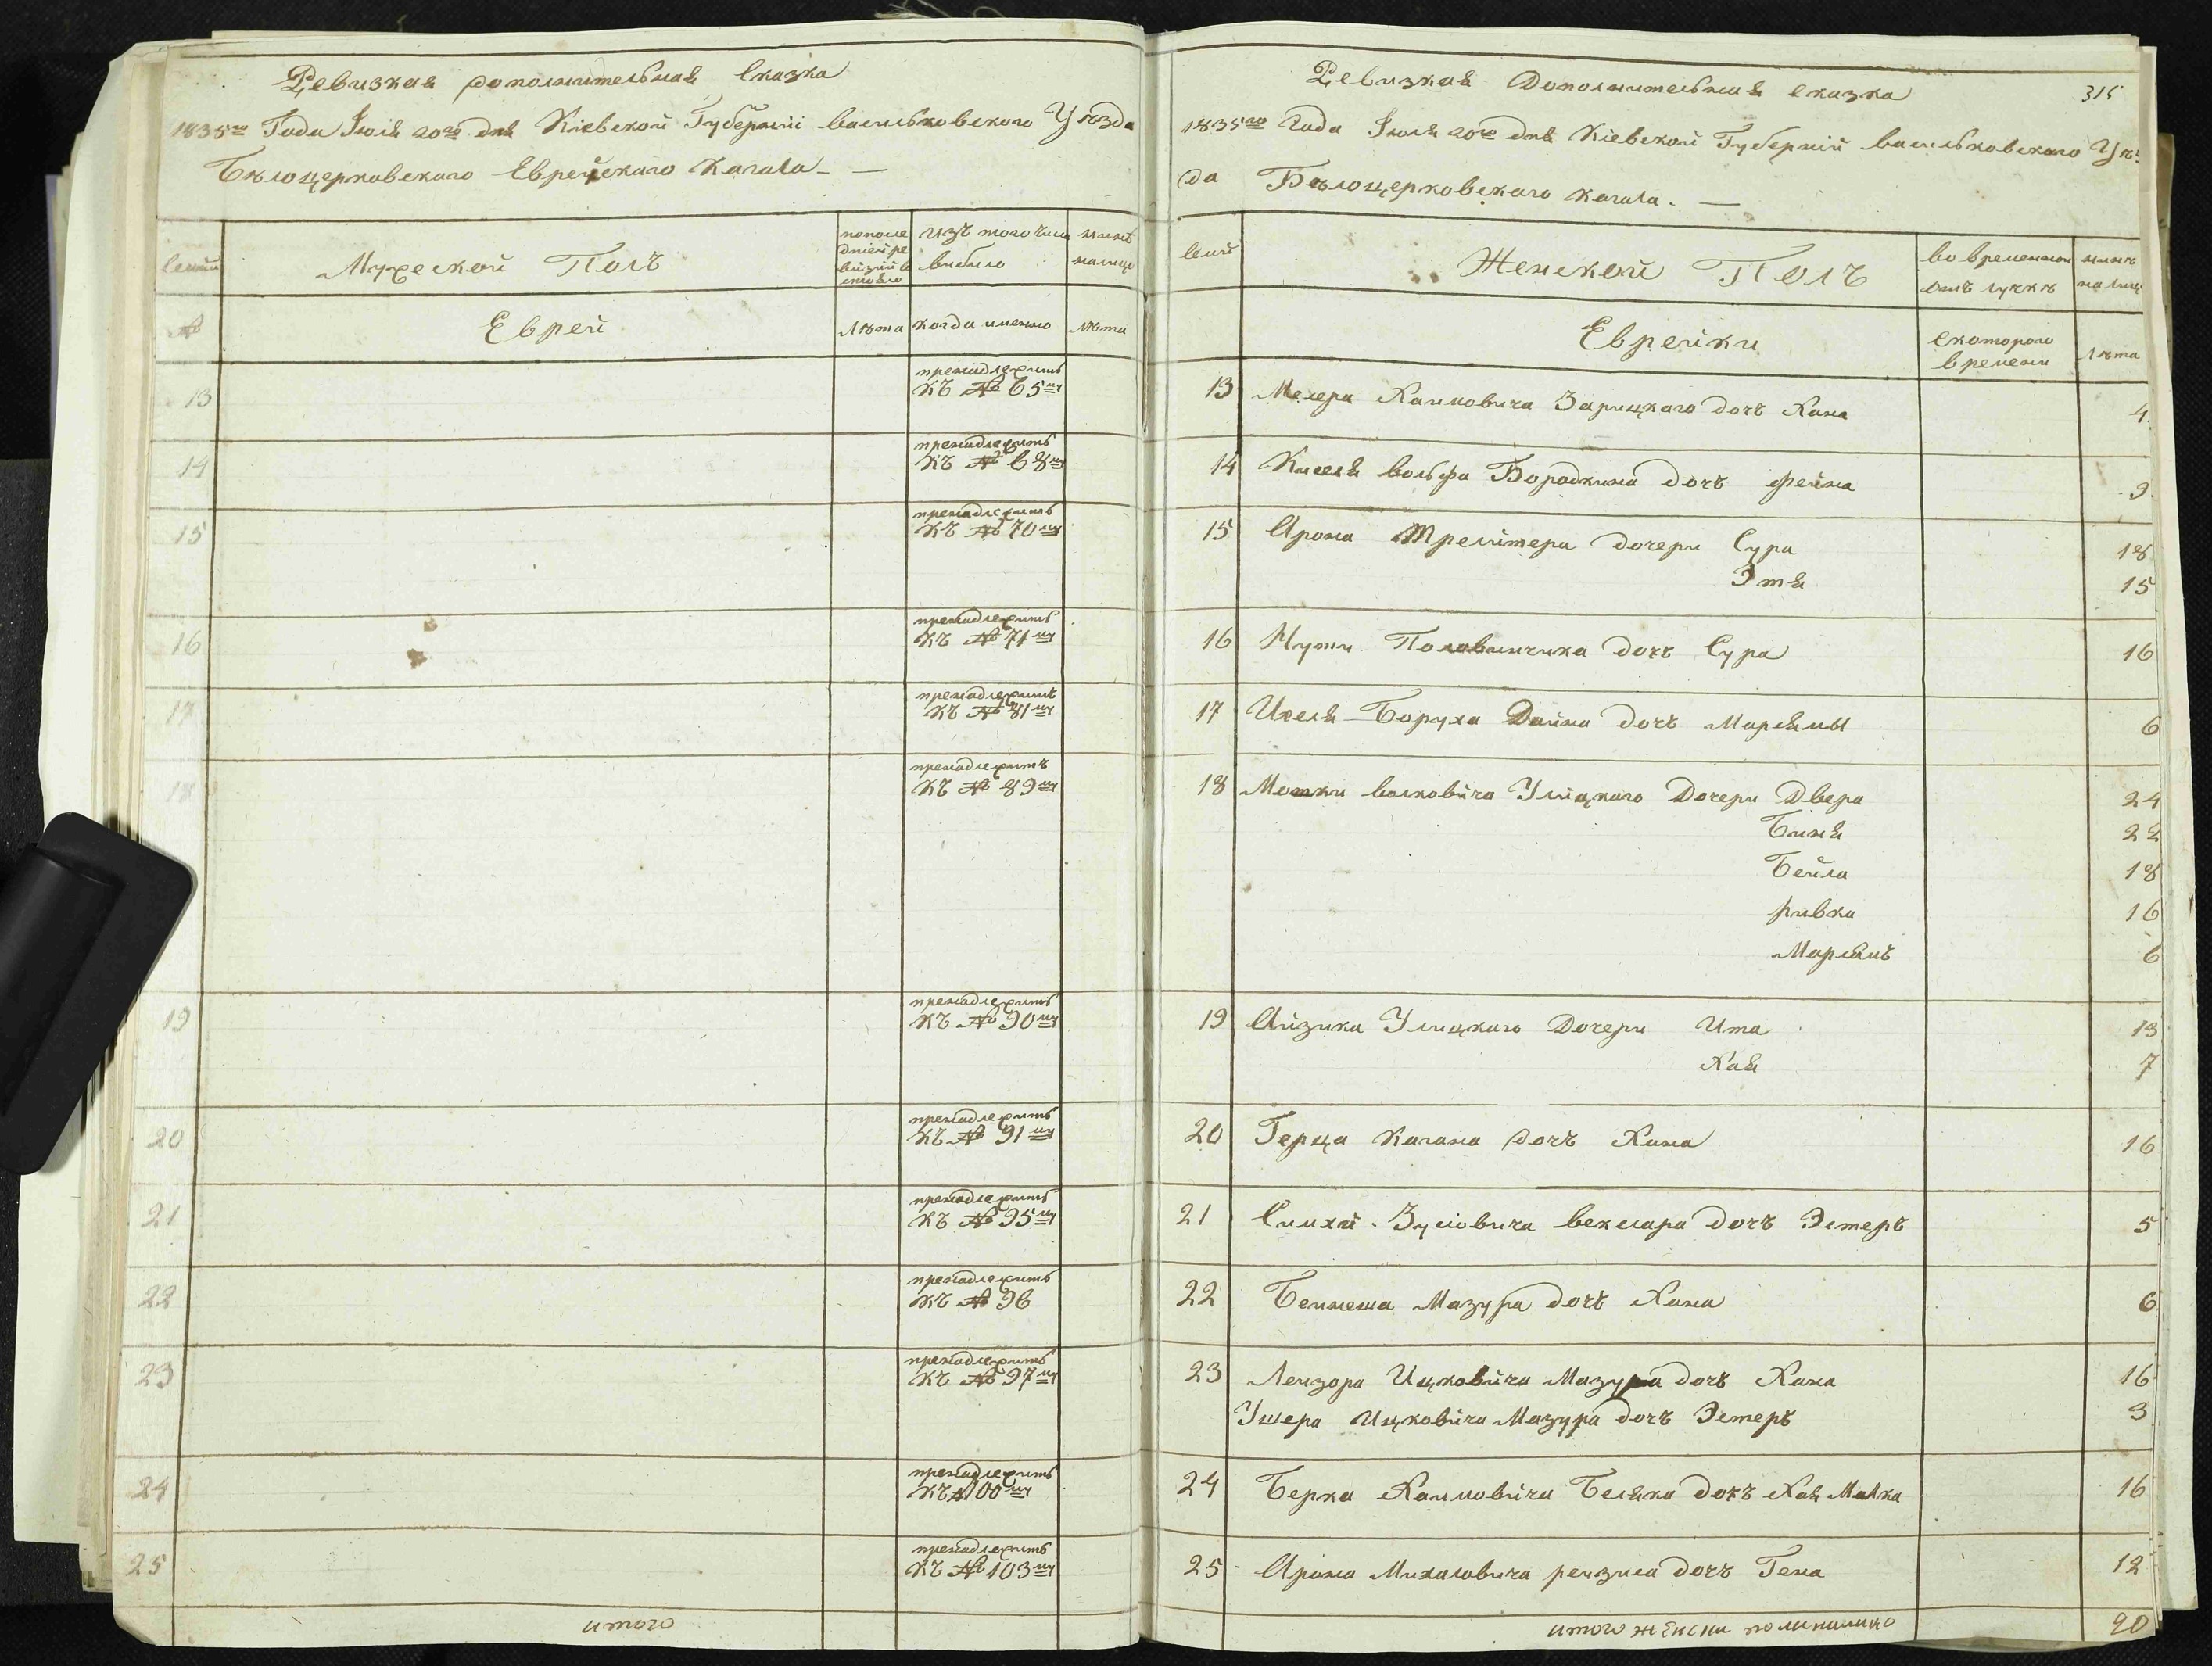 Ревизкая дополнительная Сказка
1835го Года Іюля 20го дня Кіевской Губерніи васильковского Уѣзда
Бѣлоцерковскаго Еврейскаго Кагала
семьи
Мужеской Полъ
по после
дней ре
визіи
состояло
изъ того числа
выбыло
нынѣ
налицо
№
Еврей
Лѣта
когда именно
Лѣта
13
пренадлежитъ
къ № 65му
14
пренадлежитъ
къ № 68му
15
пренадлежитъ
къ № 70му
16
пренадлежитъ
къ № 71му
17
пренадлежитъ
къ № 81му
18
пренадлежитъ
къ № 89му
19
пренадлежитъ
къ № 90му
20
пренадлежитъ
къ № 91му
21
пренадлежитъ
къ № 95му
22
пренадлежитъ
къ № 96
23
пренадлежитъ
къ № 97му
24
пренадлежитъ
къ № 100му
25
пренадлежитъ
къ № 103му
итого
315
Ревизкая Дополнительная сказка
1835го Года Іюля 20го дня Кіевской Губерніи васильковскаго Уѣз
да Бѣлоцерковскаго Кагала.
семьи
Женской Полъ
во временной
отлучкѣ
нынѣ
налиц
Еврейки
скоторого
времени
Лѣта
13 Мееера Хаимовича Зарицкаго дочъ Хана 4
14 Киселя вольфа Бородкина дочъ фейга 9
15 Арона Трейстера дочери Сура 18
Этя 15
16 Мути Половинчика дочъ Сура 16
17 Ихеля Боруха Дайна дочъ Марьямы 6
18 Мошки волковича Улицкаго Дочери Двера 24
Биня 22
Бейла 18
ривка 16
Марьямъ 6
19 Айзика Улицкаго Дочери Ита 13
Хая 7
20 Герца Кагана дочъ Хана 16
21 Симхи Зусіовича векслара дочъ Эстеръ 5
22 Бенеша Мазура дочъ Хана 6
23 Лейзора Ицковича Мазура дочъ Хана 16
Ушера Ицковича Мазура дочъ Эстеръ 3
24 Берка Хаимовича Беляка дочъ Хая Малка 16
25 Арона Михаловича рейзиса дочъ Гена 12
итого женска пола налицо 20